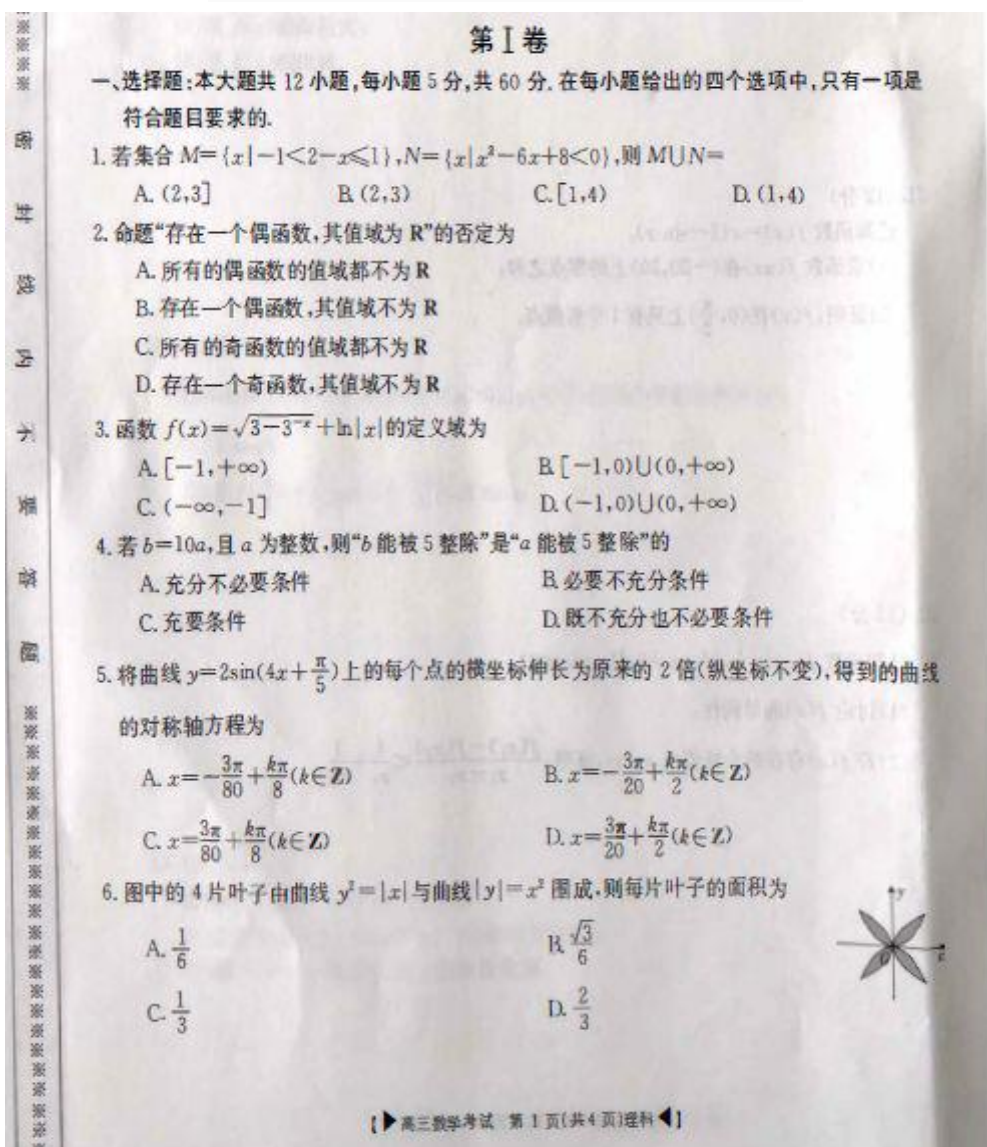 第Ⅰ卷
一、选择题:本大题共 12 小题,每小题 5 分,共 60 分. 在每小题给出的四个选项中,只有一项是
符合题目要求的.
1. 若集合 M={x|-1<2-x≤1},N={x|x²-6x+8<0},则 M∪N=
A. (2,3] B. (2,3) C. [1,4) D. (1,4)
2. 命题“存在一个偶函数,其值域为 R”的否定为
A. 所有的偶函数的值域都不为 R
B. 存在一个偶函数,其值域不为 R
C. 所有的奇函数的值域都不为 R
D. 存在一个奇函数,其值域不为 R
3. 函数 f(x)=√(3-3⁻ˣ)+ln|x|的定义域为
A. [-1,+∞) B. [-1,0)∪(0,+∞)
C. (-∞,-1] D. (-1,0)∪(0,+∞)
4. 若 b=10a,且 a 为整数,则“b 能被 5 整除”是“a 能被 5 整除”的
A. 充分不必要条件 B. 必要不充分条件
C. 充要条件 D. 既不充分也不必要条件
5. 将曲线 y=2sin(4x+π/5)上的每个点的横坐标伸长为原来的 2 倍(纵坐标不变),得到的曲线
的对称轴方程为
A. x=-3π/80+kπ/8(k∈Z) B. x=-3π/20+kπ/2(k∈Z)
C. x=3π/80+kπ/8(k∈Z) D. x=3π/20+kπ/2(k∈Z)
6. 图中的 4 片叶子由曲线 y²=|x|与曲线|y|=x² 围成,则每片叶子的面积为
A. 1/6 B. √3/6
C. 1/3 D. 2/3
y
x
【▶高三数学考试 第 1 页(共 4 页)理科◀】
※※※※ 密 封 线 内 不 要 答 题 ※※※※※※※※※※※※※※※※※※※※※